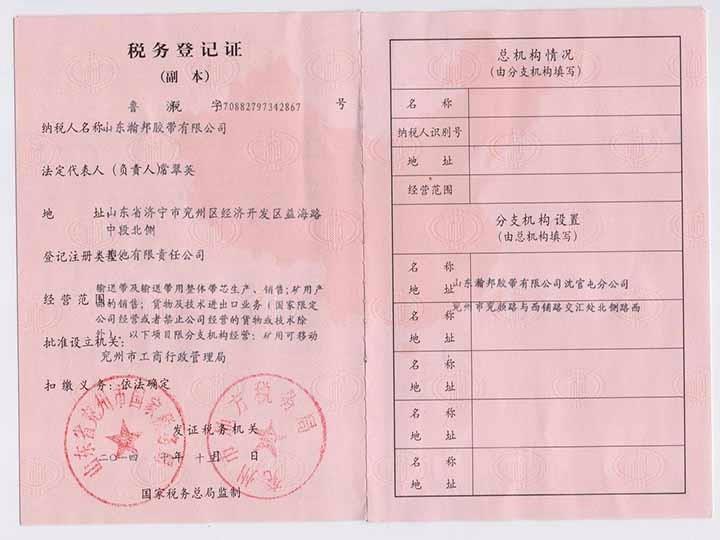 税务登记证
(副 本)
鲁 税 字 370882797342867 号
纳税人名称 山东瀚邦胶带有限公司
法定代表人 (负责人) 席翠英
地 址 山东省济宁市兖州区经济开发区益海路
中段北侧
登记注册类型 其他有限责任公司
输送带及输送带用整体带芯生产、销售;矿用产
经营范围 品的销售;货物及技术进出口业务(国家限定
公司经营或者禁止公司经营的货物或技术除
外)。以下项目限分支机构经营:矿用可移动
批准设立机关:
兖州市工商行政管理局
扣缴义务:依法确定
发证税务机关
二〇一四 年 十 月 日
国家税务总局监制
山东省兖州市国家税务局
兖州市地方税务局
总机构情况
(由分支机构填写)
名 称
纳税人识别号
地 址
经营范围
分支机构设置
(由总机构填写)
名 称
地 址 山东瀚邦胶带有限公司沈官屯分公司
名 称 兖州市兖颜路与西铺路交汇处北侧路西
地 址
名 称
地 址
名 称
地 址
名 称
地 址